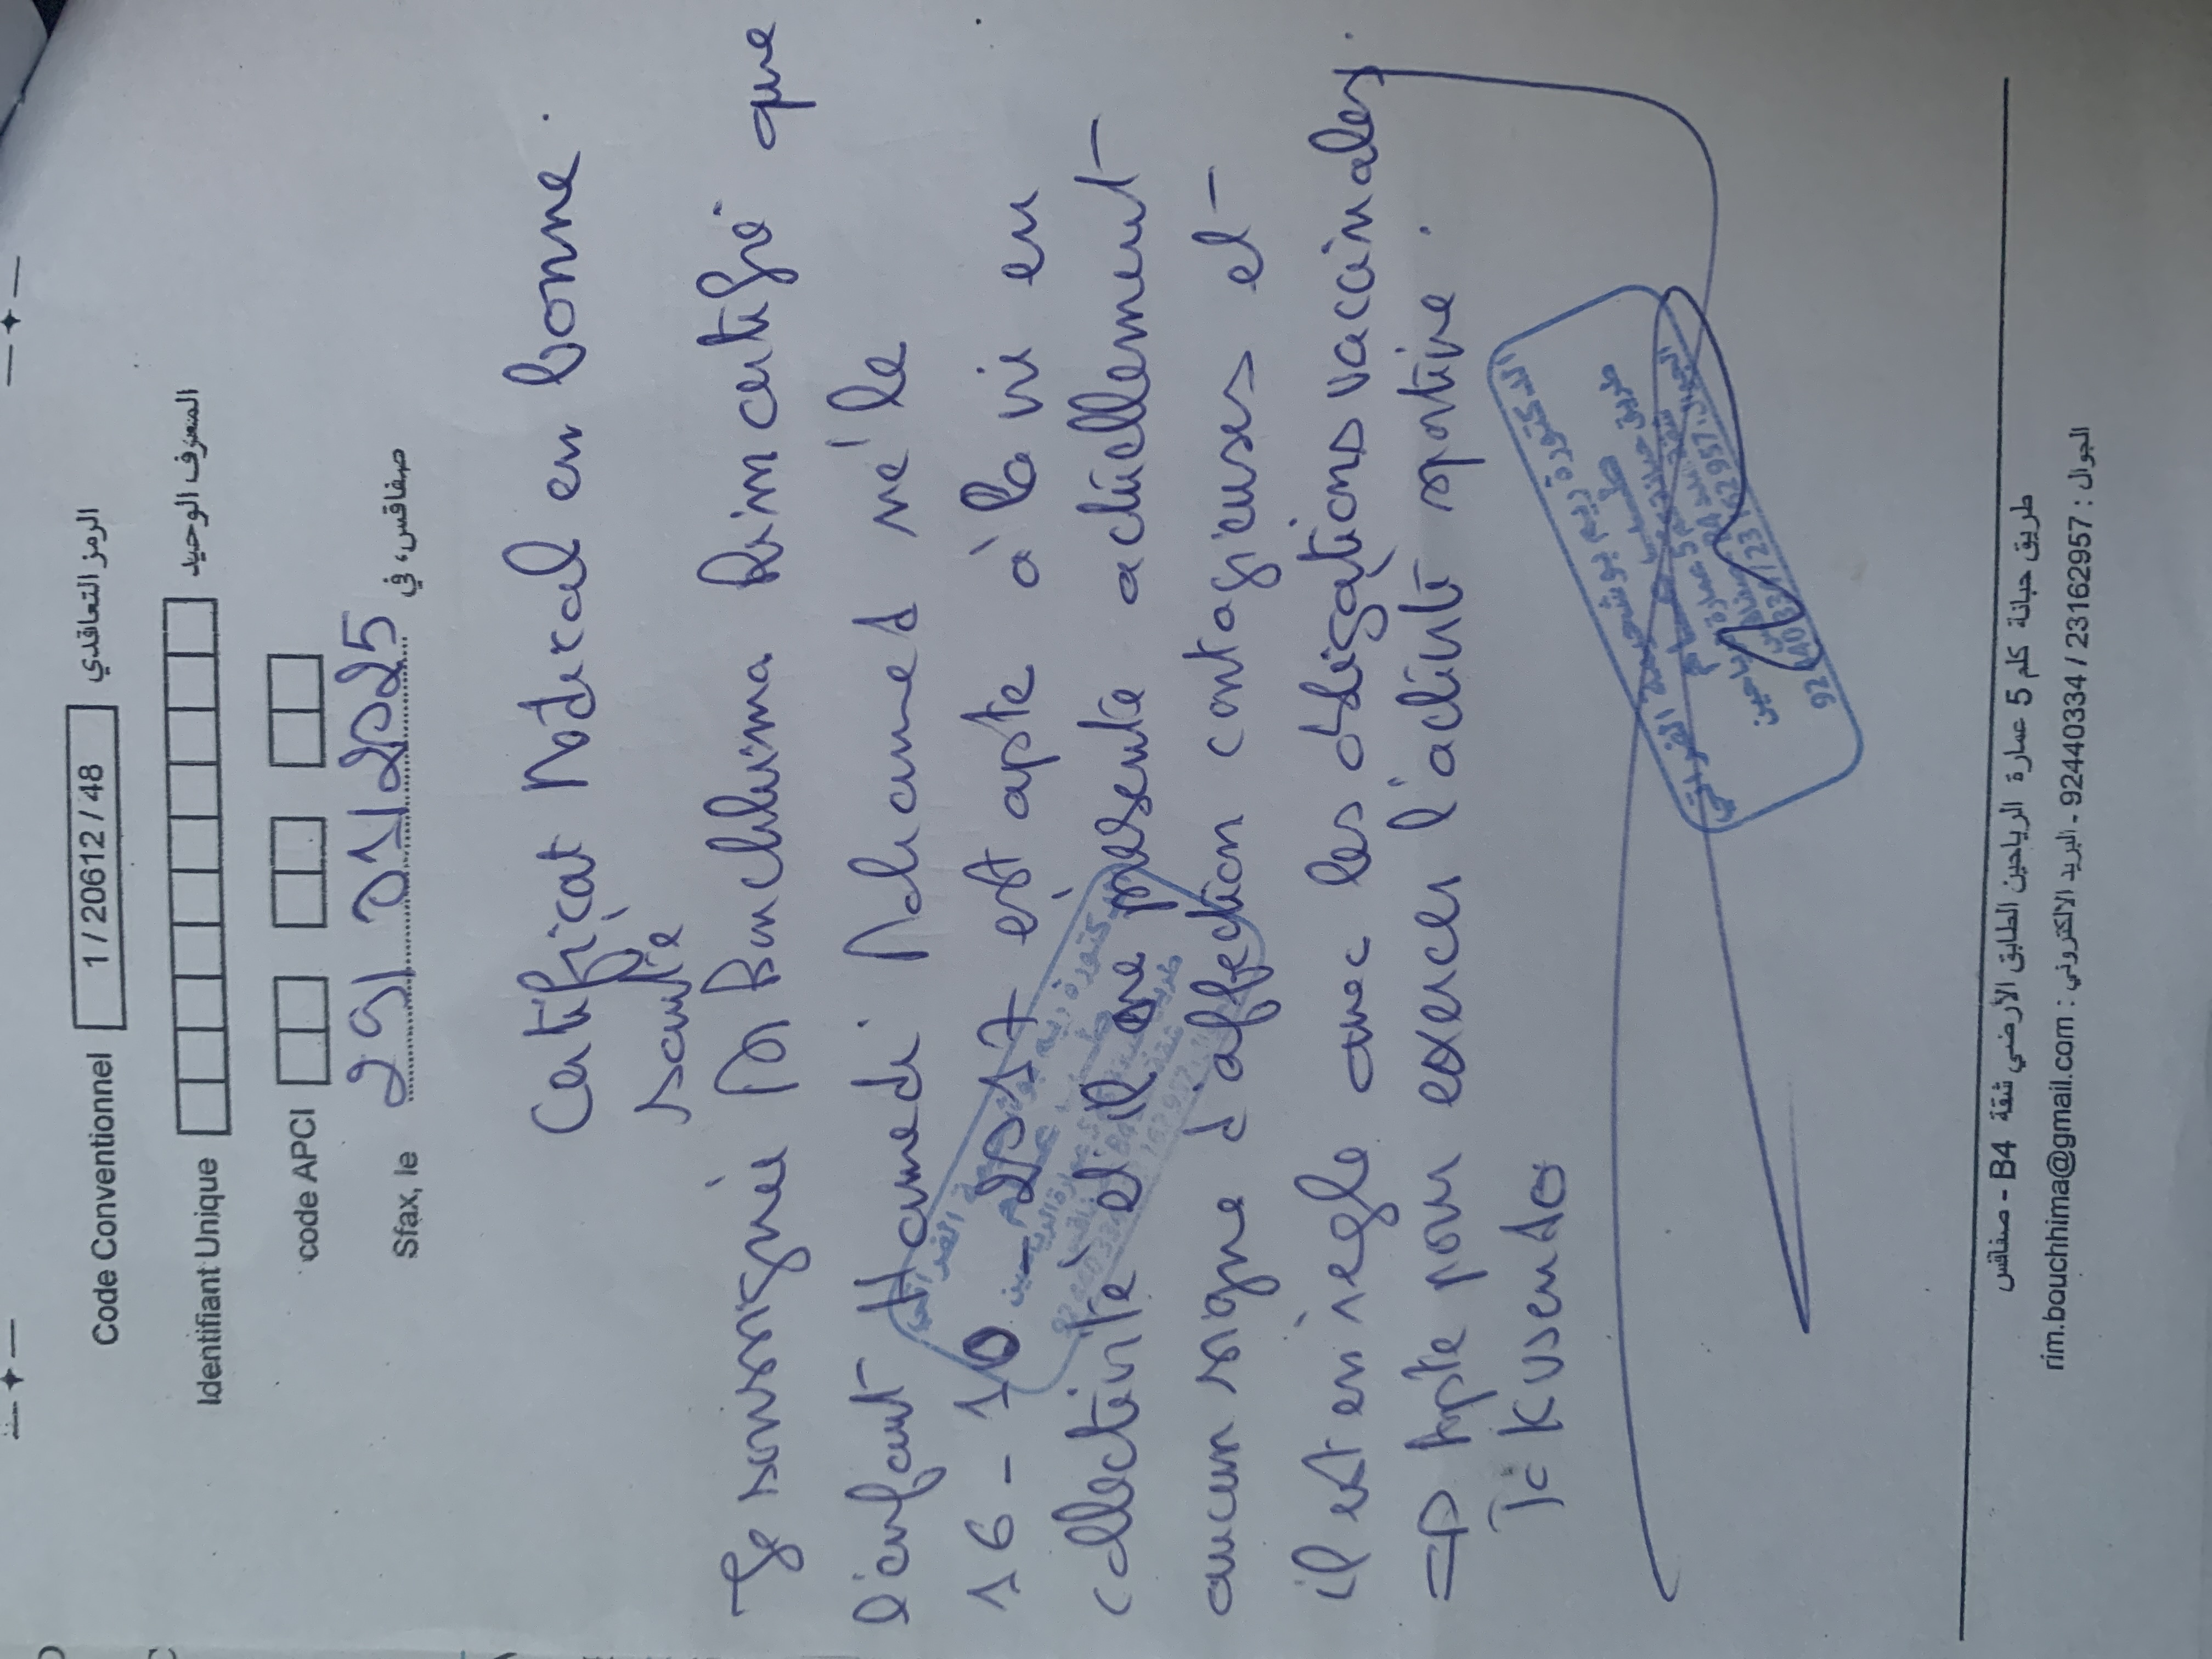 Code Conventionnel 1 / 20612 / 48 الرمز التعاقدي
Identifiant Unique المعرف الوحيد
code APCI
Sfax, le 29/01/2025 صفاقس، في
Certificat Médical en bonne.
santé
Je soussigné Dr Bouchhima Rim certifié que
l'enfant Hamedi Mohamed né le
16-10-2017 est apte à la vie en
collectivité et il ne présente actuellement
aucun signe d'affection contagieuses et
il est en règle avec les obligations vaccinales.
=D Apte pour exercer l'activité sportive.
الدكتورة ريم بوشحيمة الفراتي
92 440334 / 23 162 957 الجوال
طريق حبانة كلم 5 عمارة الرياحين الطابق الأرضي شقة B4 - صفاقس
rim.bouchhima@gmail.com : الجوال : 23162957 / 92440334 - البريد الالكتروني